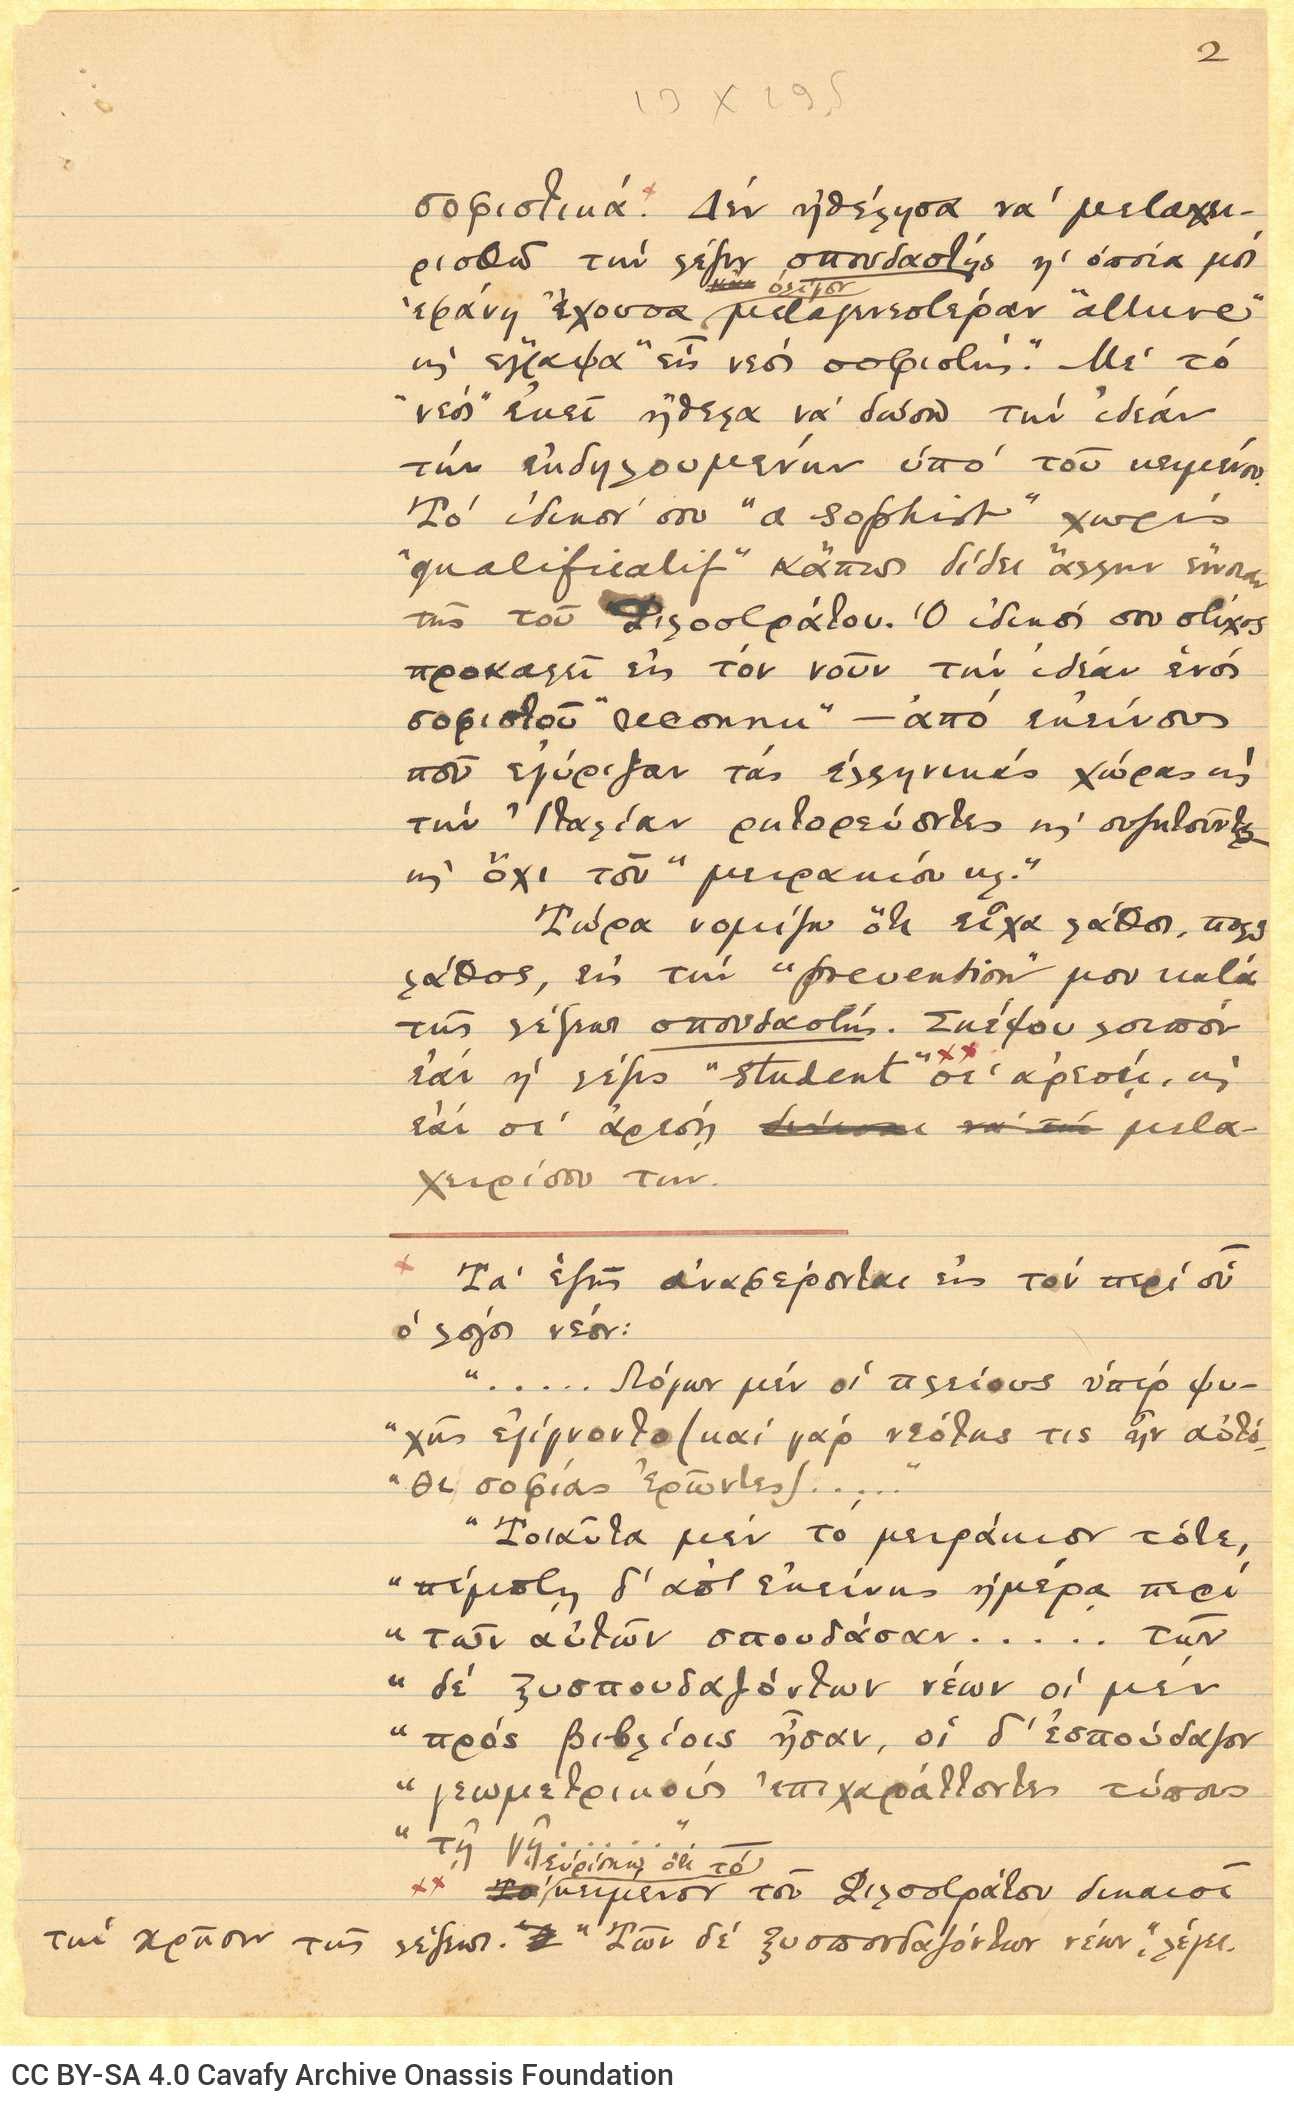 2
19 X 195
σοφιστικά.× Δέν ἠθέλησα νά μεταχει-
ρισθῶ τήν λέξιν σπουδαστής ἡ ὁποία μοί
ὀλίγον
ἐφάνη ἔχουσα μεταγενεστέραν "allure"
κ' ἔγραψα "εἷς νέος σοφιστής." Μέ τό
"νέος" ἐκεῖ ἤθελα νά δώσω τήν ἰδέαν
τήν ἐκδηλουμένην ὑπό τοῦ κειμένου.
Τό ἰδικόν σου "a sophist" χωρίς
"qualificatif" κἄπως δίδει ἄλλην ἔννοιαν
τῆς τοῦ Φιλοστράτου. Ὁ ἰδικός σου στίχος
προκαλεῖ εἰς τόν νοῦν τήν ἰδέαν ἑνός
σοφιστοῦ "reconnu" — ἀπό ἐκείνους
ποῦ ἐγύριζαν τάς ἑλληνικάς χώρας κ'
τήν Ἰταλίαν ρητορεύοντες κ' συζητοῦντες
κ' ὄχι τοῦ "μειρακίου κλ."
Τώρα νομίζω ὅτι εἶχα λάθος, πολύ
λάθος, εἰς τήν "prevention" μου κατά
τῆς λέξεως σπουδαστής. Σκέψου λοιπόν
ἐάν ἡ λέξις "student"×× σέ ἀρέσῃ, κ'
ἐάν σέ ἀρέσῃ μετα-
χειρίσου την.
× Τά ἑξῆς ἀναφέρονται εἰς τόν περί οὗ
ὁ λόγος νέον:
"..... Λόγων μέν οἱ πλείους ὑπέρ ψυ-
"χῆς ἐγίγνοντο (καί γάρ νεότης τις ἦν αὐτό-
"θι σοφίας ἐρῶντες)....."
"Τοιαῦτα μέν τό μειράκιον τότε,
"πέμπτῃ δ' ἀπ' ἐκείνης ἡμέρᾳ περί
"τῶν αὐτῶν σπουδάσαν..... τῶν
"δέ ξυσπουδαζόντων νέων οἱ μέν
"πρός βιβλίοις ἦσαν, οἱ δ' ἐσπούδαζον
"γεωμετρικούς ἐπιχαράττοντες τύπους
"τῇ γῇ......"
εὑρίσκω ὅτι τό
×× Τό κείμενον τοῦ Φιλοστράτου δικαιοῖ
τήν χρῆσιν τῆς λέξεως. "Τῶν δέ ξυσπουδαζόντων νέων", λέγει.
CC BY-SA 4.0 Cavafy Archive Onassis Foundation